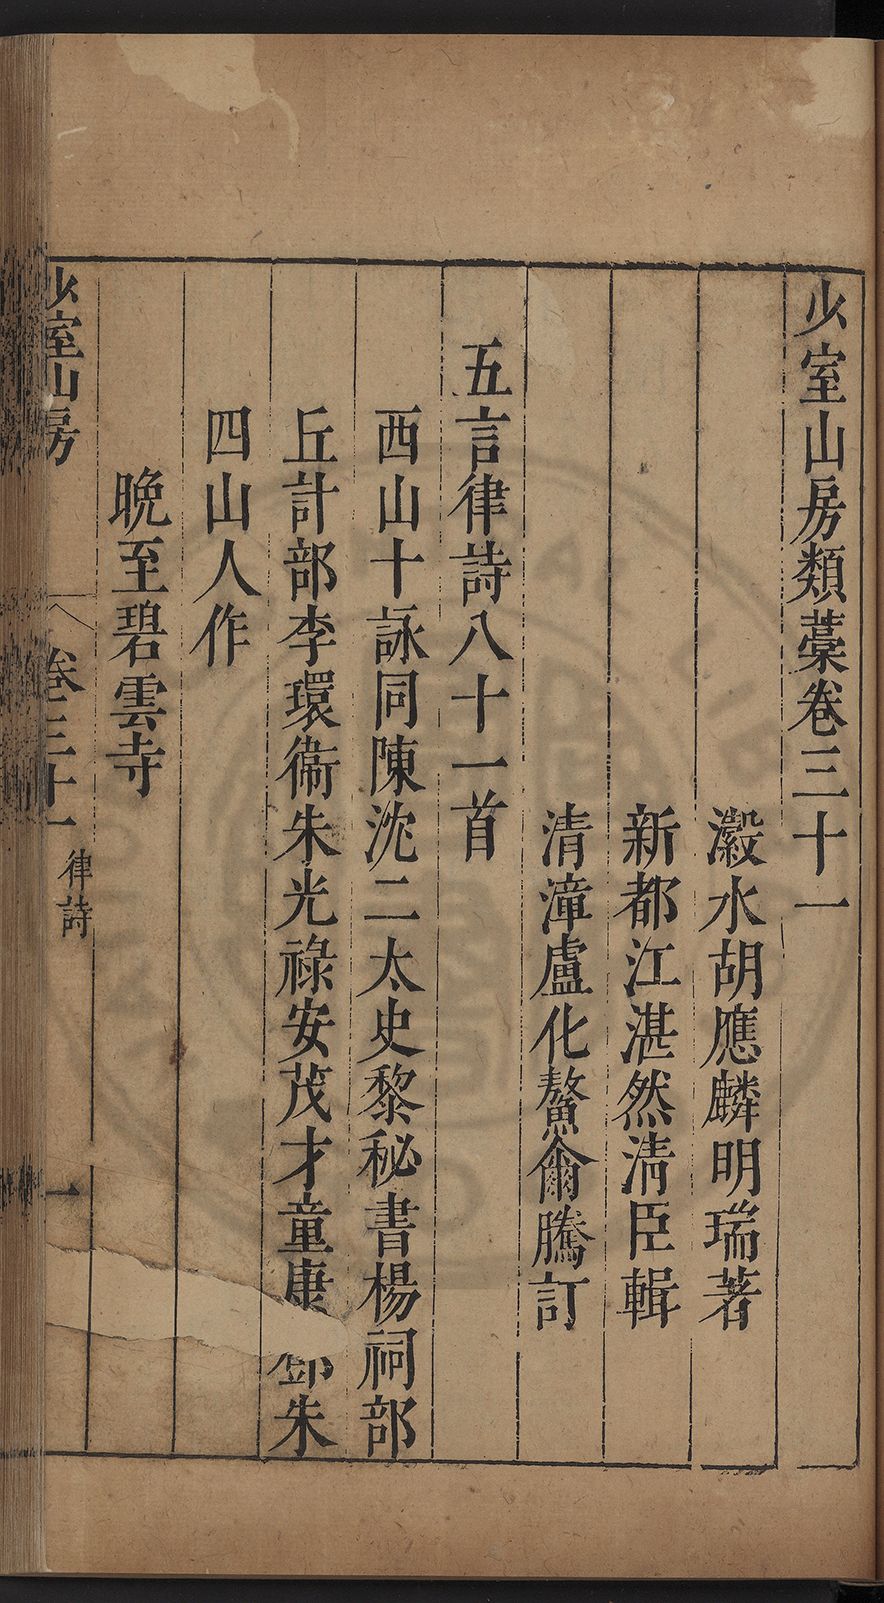 少室山房類藁卷三十一
瀫水胡應麟明瑞著
新都江湛然清臣輯
清漳盧化鰲爾騰訂
五言律詩八十一首
西山十詠同陳沈二太史黎秘書楊祠部
丘計部李環衞朱光祿安茂才童康鄧朱
四山人作
晩至碧雲寺
少室山房
卷三十一
律詩
一